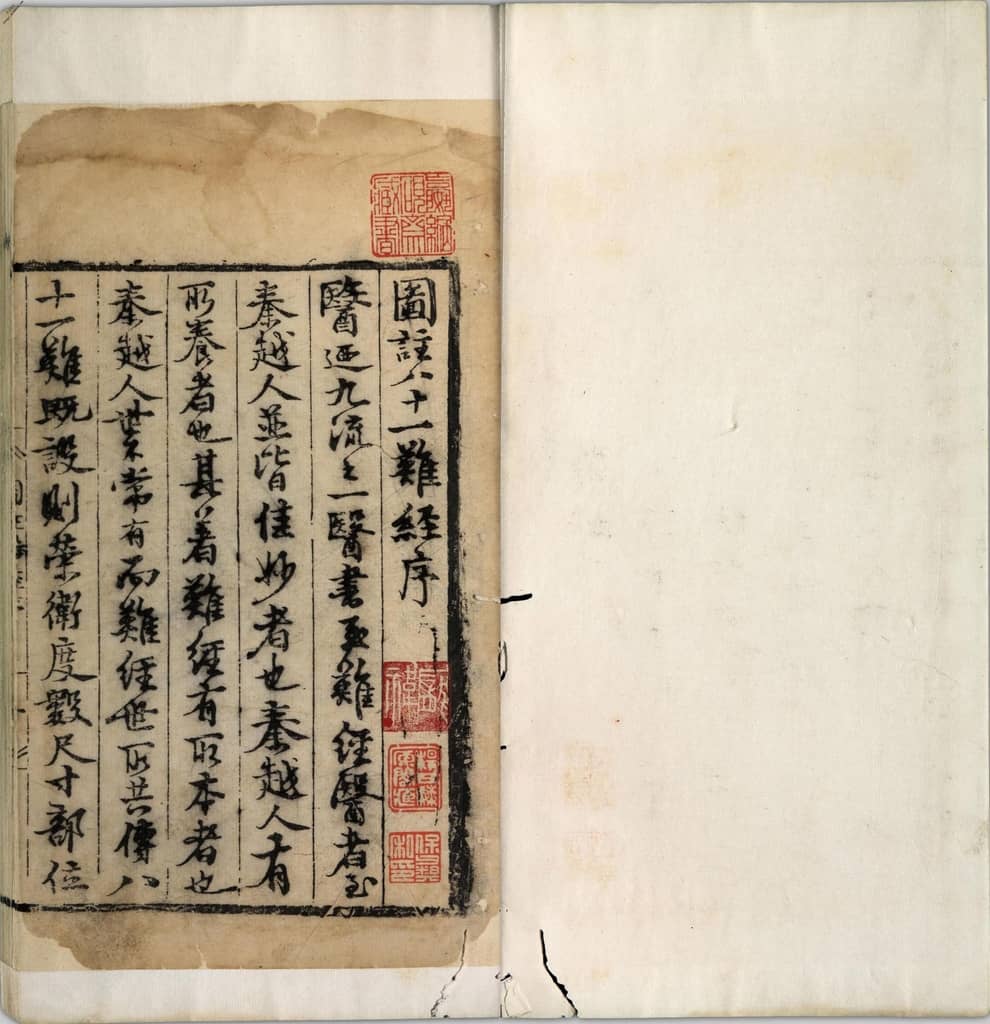 圖註八十一難經序
醫迺九流之一醫書至難經醫者至
秦越人並皆佳妙者也秦越人有
所養者也其著難經有所本者也
秦越人世不常有而難經世所共傳八
十一難既設則榮衛度數尺寸部位